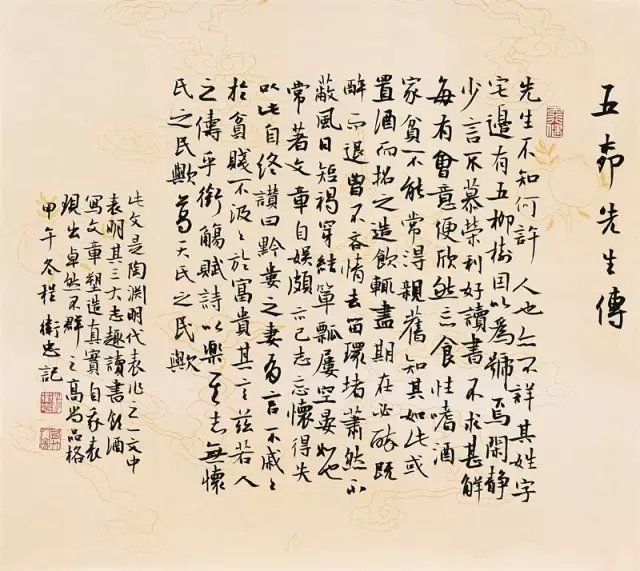 五柳先生傳
先生不知何許人也亦不詳其姓字
宅邊有五柳樹因以為號焉閑靜
少言不慕榮利好讀書不求甚解
每有會意便欣然忘食性嗜酒
家貧不能常得親舊知其如此或
置酒而招之造飲輒盡期在必醉既
醉而退曾不吝情去留環堵蕭然不
蔽風日短褐穿結簞瓢屢空晏如也
常著文章自娛頗示己志忘懷得失
以此自終讚曰黔婁之妻有言不戚々
於貧賤不汲々於富貴其言茲若人
之儔乎銜觴賦詩以樂其志無懷
氏之民歟葛天氏之民歟
此文是陶淵明代表作之一文中
表明其三大志趣讀書飲酒
寫文章塑造真實自我表
現出卓然不群之高尚品格
甲午冬程衛忠記